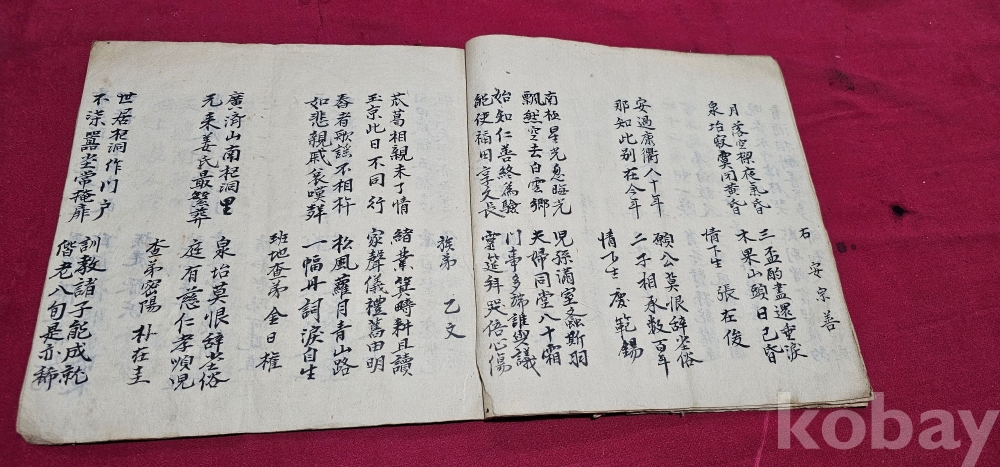 石 安宗善
月落空樑夜氣昏 三盃酌盡還垂淚
泉坮寂寞閉黃昏 木果山頭日已昏
情下生 張在俊
安過康衢八十年 願公莫恨辞塵俗
那知此別在今年 二子相承数百年
情下生 康範錫
南極星光忽晦光 児孫滿室螽斯羽
飄然空去白雲鄉 夫婦同堂八十霜
始知仁善終為驗 門事多端誰與議
能使福田享久長 靈筵拜哭倍心傷
族弟 乙文
苽葛相親未了情 緒業箕時耕且讀
玉京此日不同行 家聲儀禮舊由明
舂者歌謠不相杵 松風蘿月青山路
如悲親戚哀嘆聲 一幅丹詞淚自生
班地查弟 金日權
廣濟山南杞洞里 泉坮莫恨辞塵俗
元來姜氏最繁 庭有慈仁孝順児
查弟密陽 朴在圭
世居杞洞作門户 訓教諸子能成就
不染囂塵常掩扉 偕老八旬是亦稀
kobay